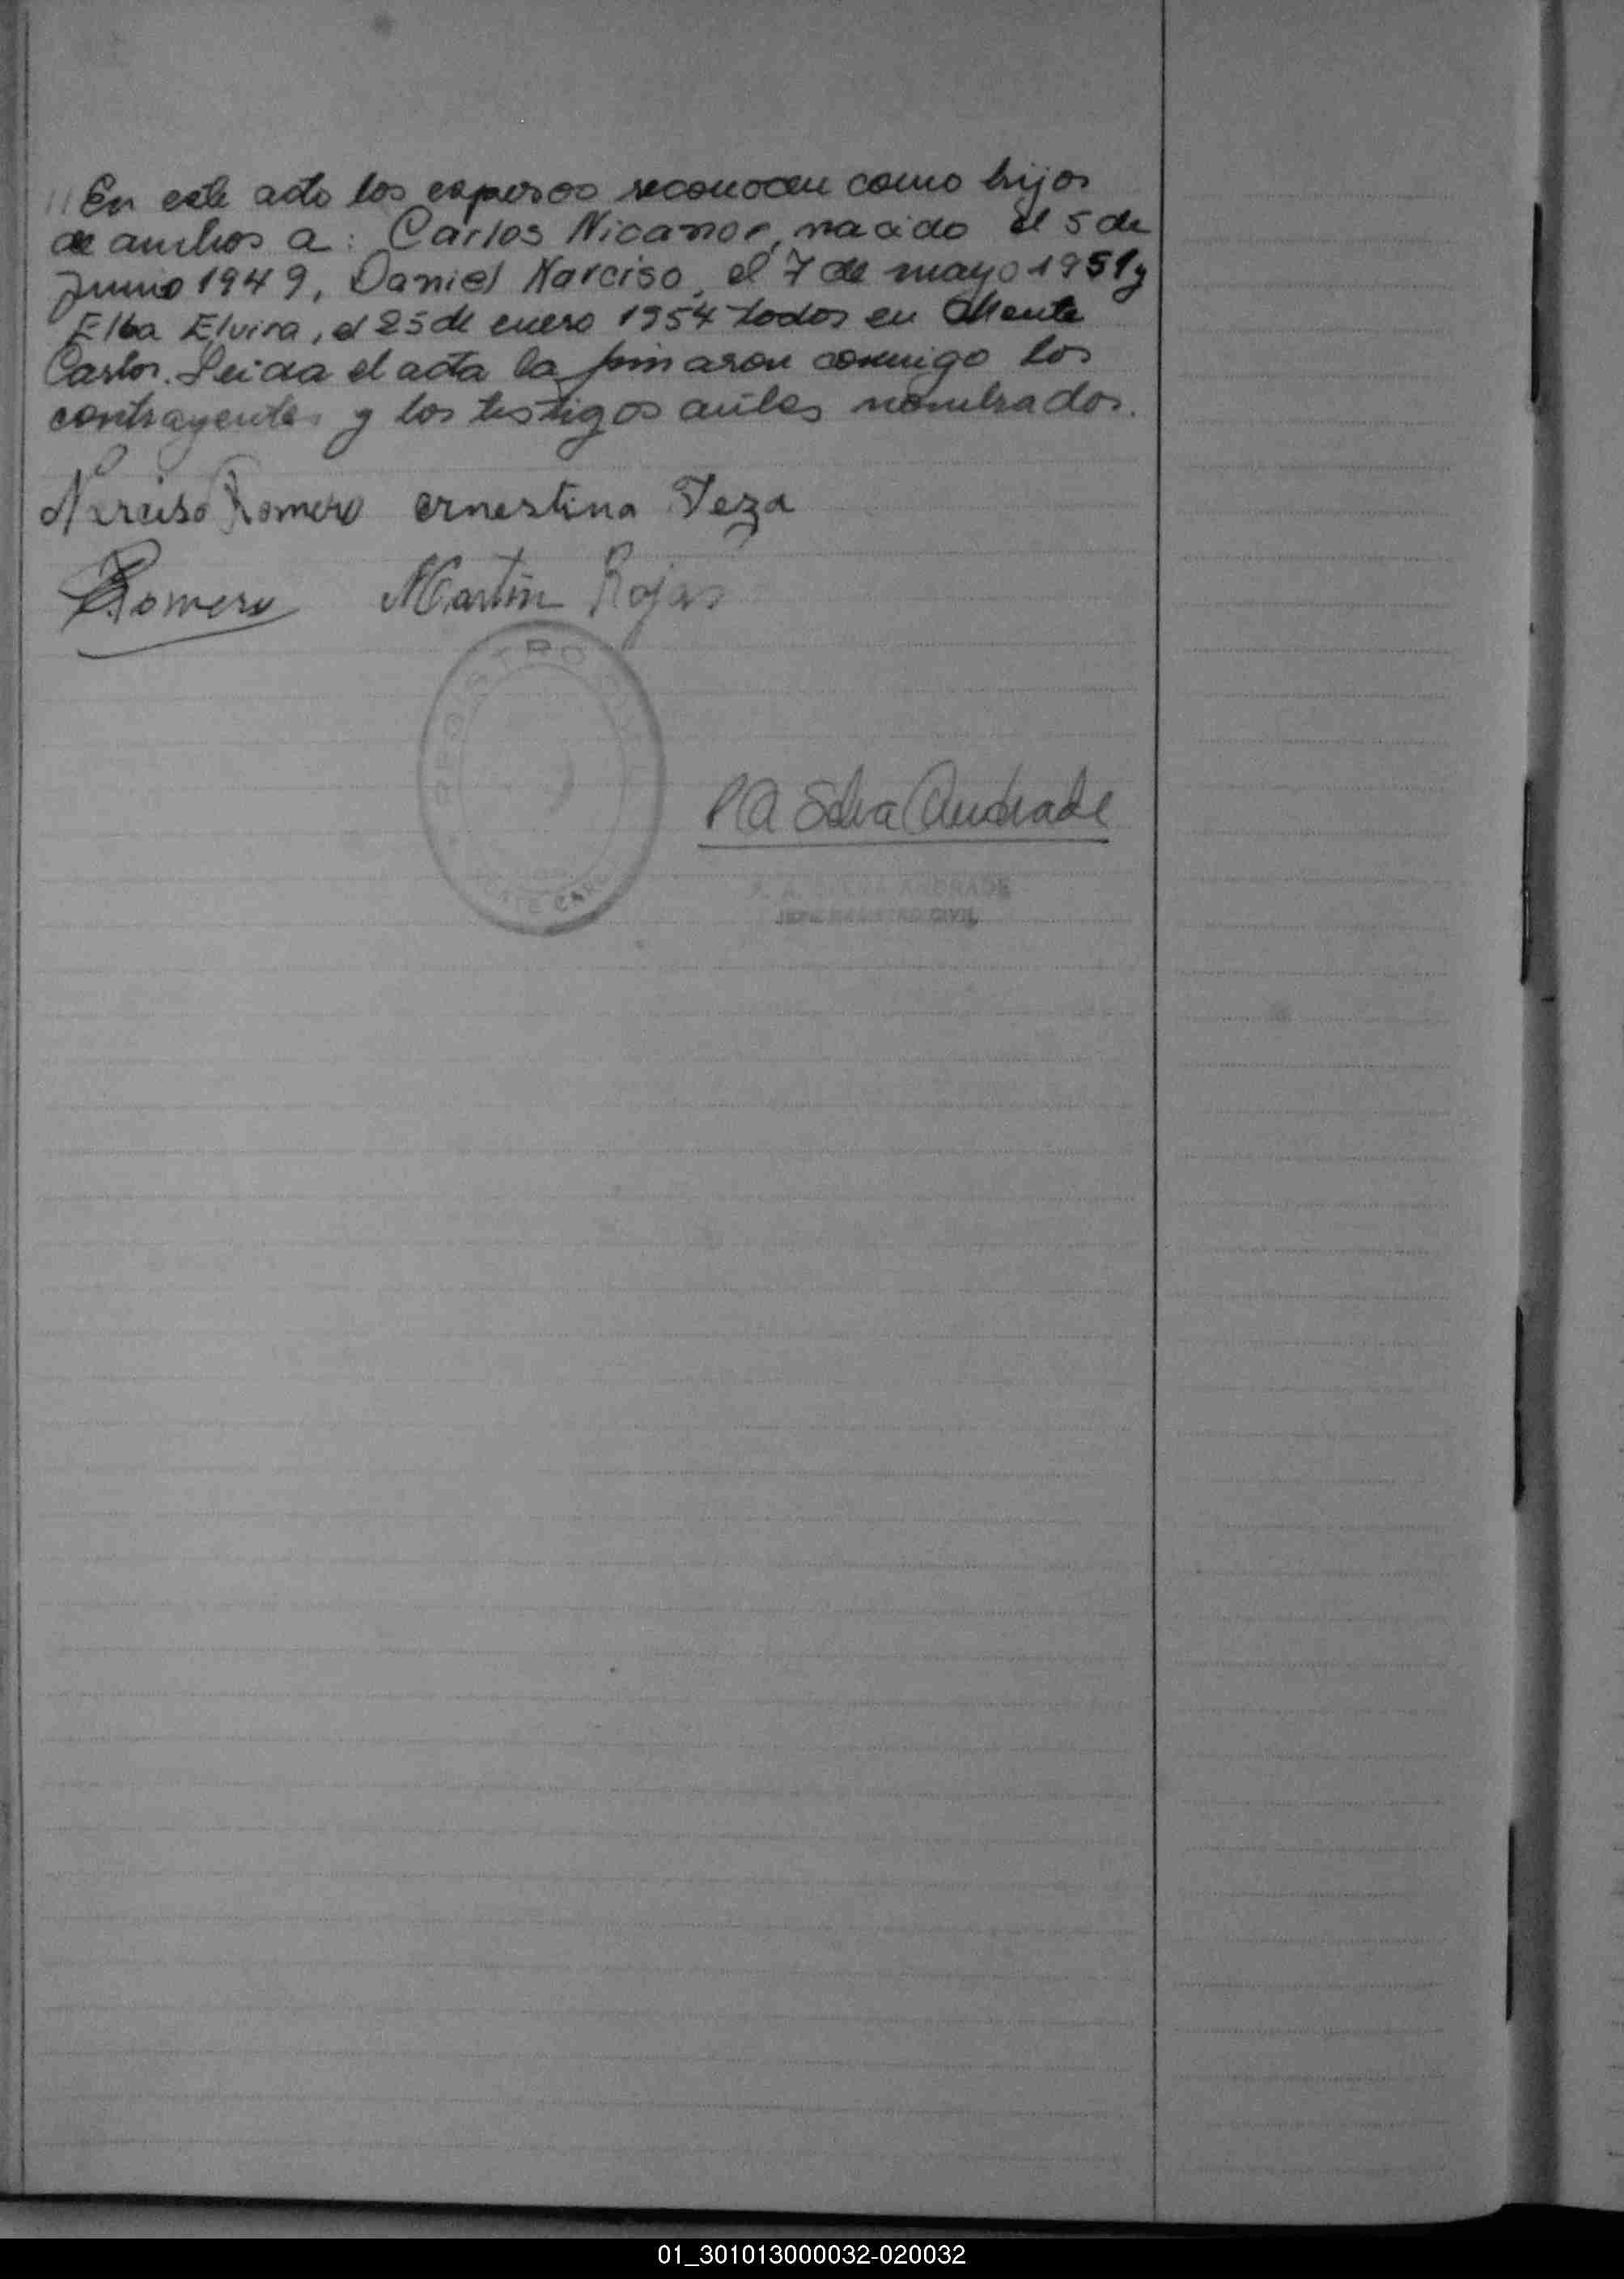 // En este acto los esposos reconocen como hijos
de ambos a: Carlos Nicanor, nacido el 5 de
Junio 1949, Daniel Narciso, el 7 de mayo 1951 y
Elba Elvira, el 25 de enero 1954 todos en Monte
Carlos. Leida el acta la firmaron conmigo los
contrayentes y los testigos antes nombrados.
Narciso Romero ernestina Teza
Romero Martin Rojas
REGISTRO CIVIL
MONTE CARLO
P A Silva Andrade
P. A. SILVA ANDRADE
JEFE REGISTRO CIVIL
01_301013000032-020032